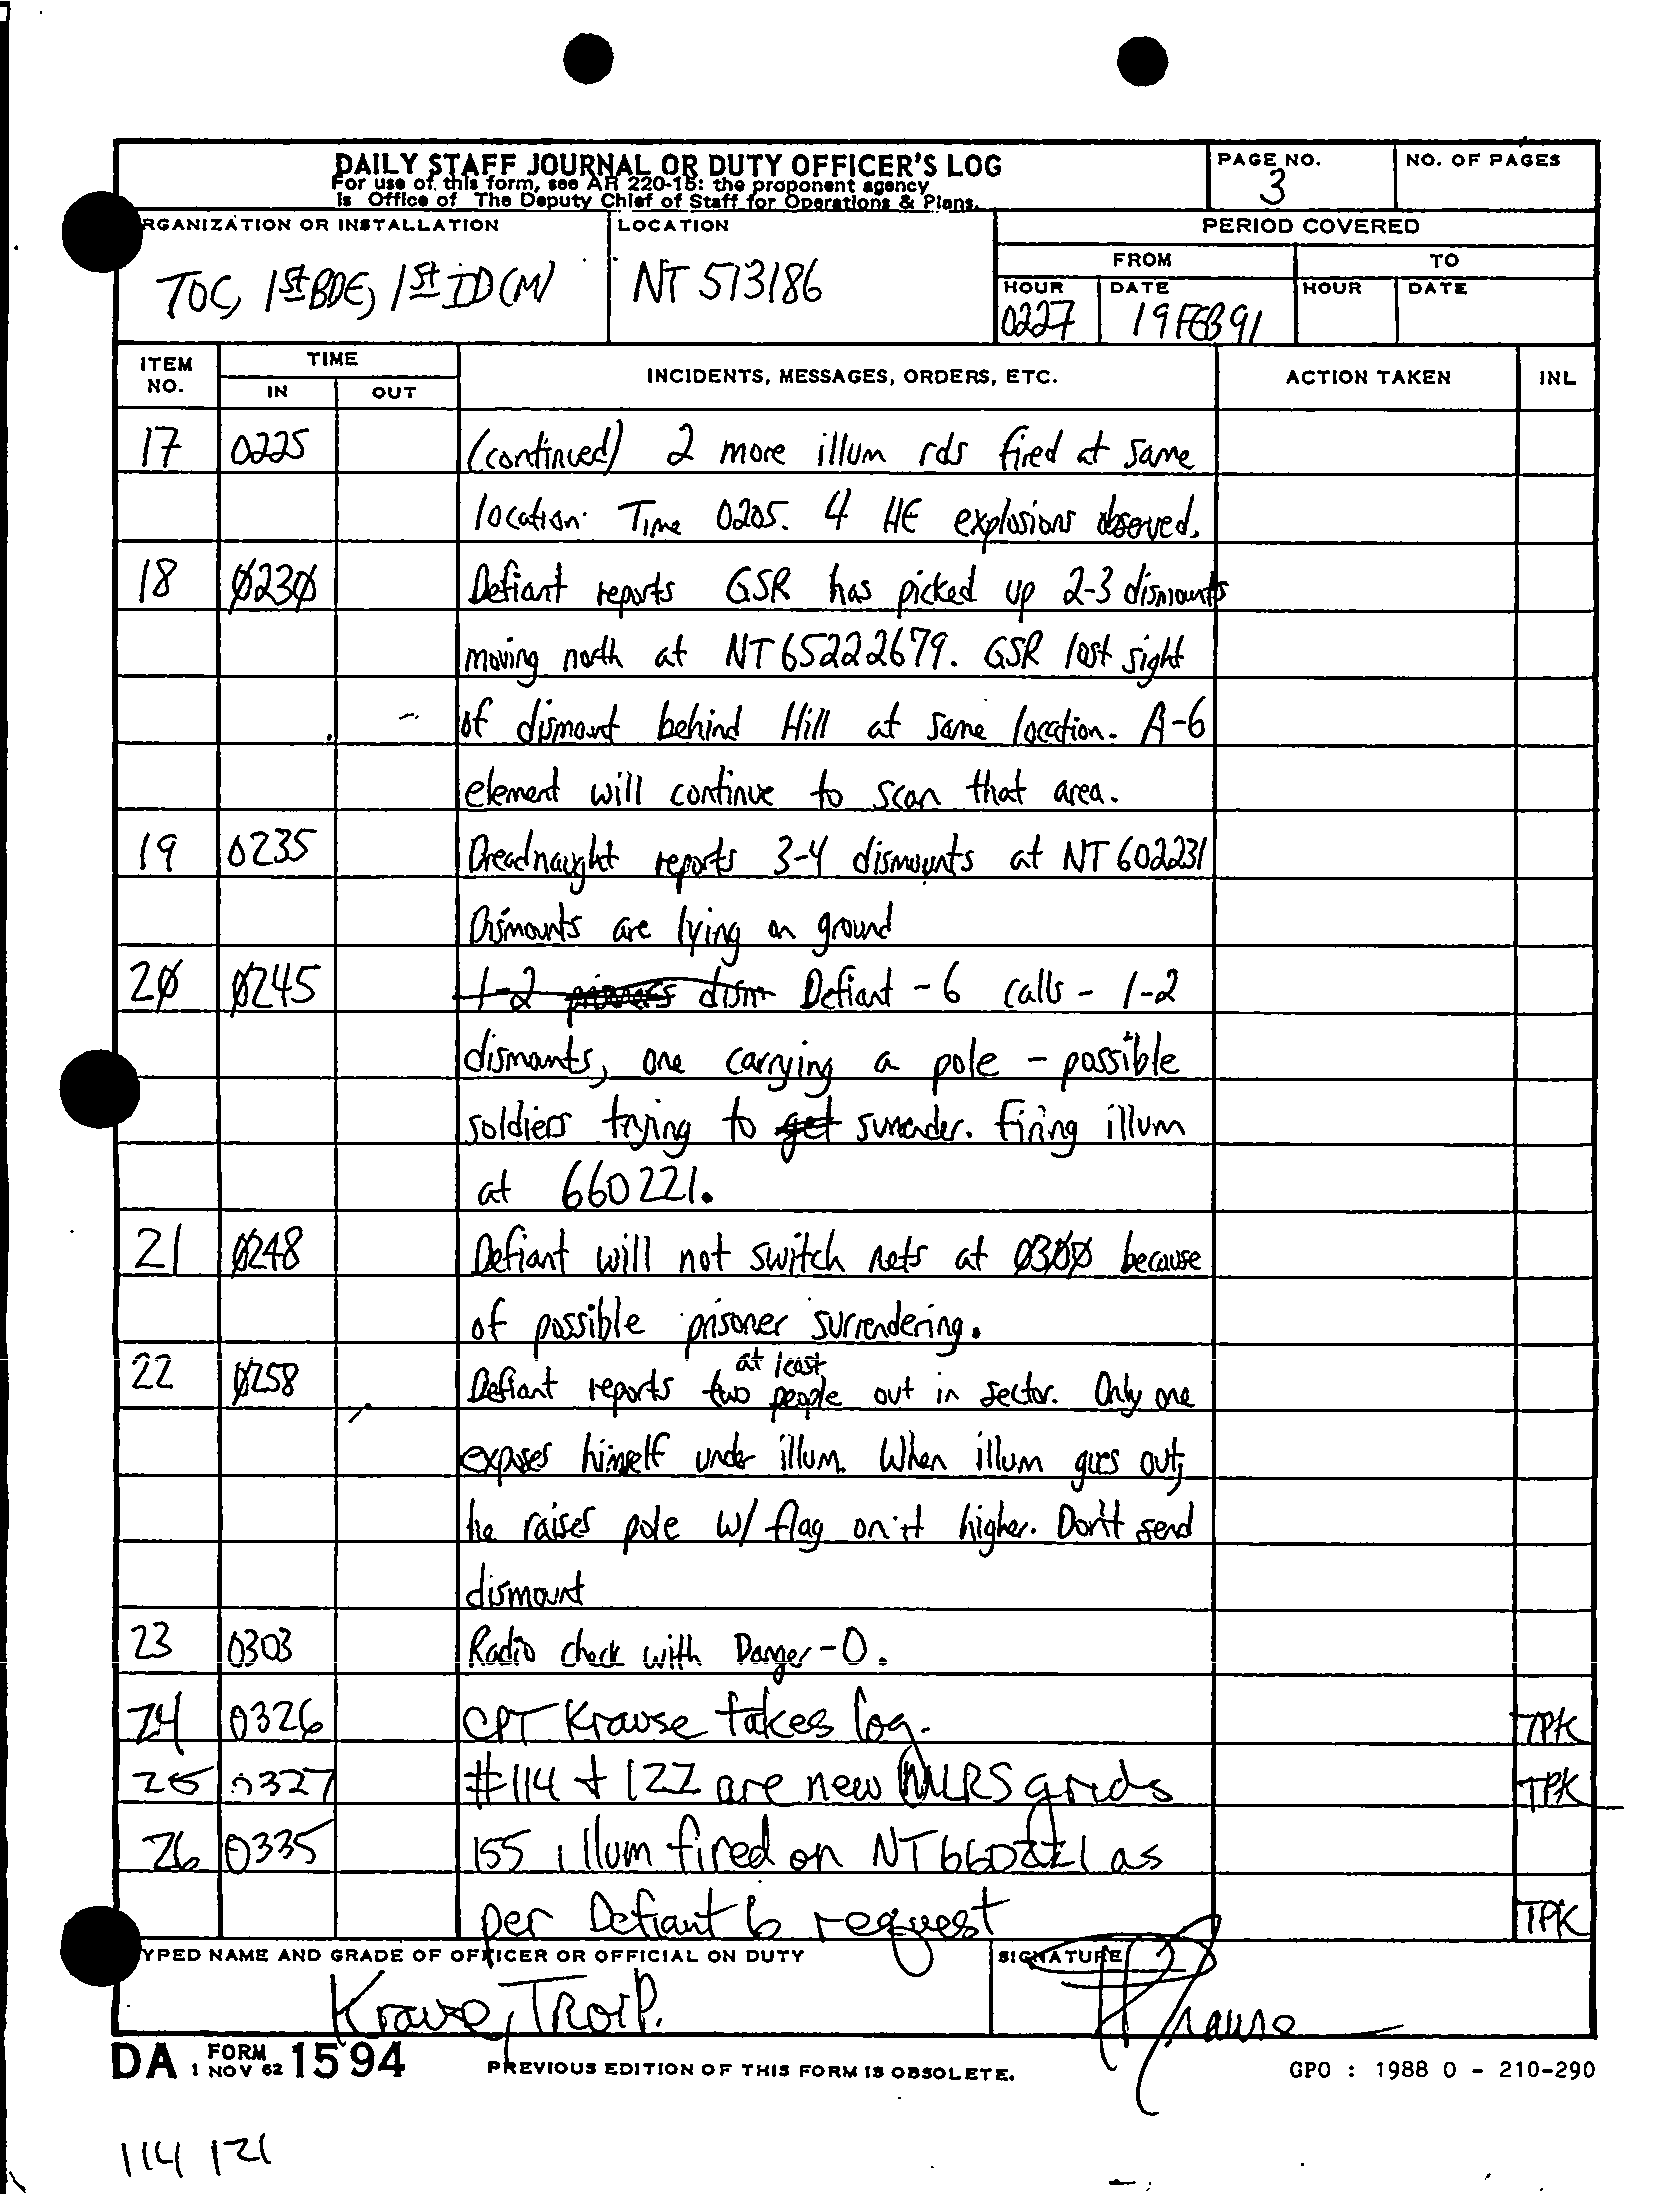 DAILY STAFF JOURNAL OR DUTY OFFICER'S LOG
For use of this form, see AR 220-15: the proponent agency
is Office of The Deputy Chief of Staff for Operations & Plans.
PAGE NO.
3
NO. OF PAGES
RGANIZATION OR INSTALLATION
TOC, 1st BDE, 1st ID (M)
LOCATION
NT 573186
PERIOD COVERED
FROM
TO
HOUR
0227
DATE
19 FEB 91
HOUR
DATE
ITEM NO.
TIME
IN
OUT
INCIDENTS, MESSAGES, ORDERS, ETC.
ACTION TAKEN
INL
17 0225 (continued) 2 more illum rds fired at same
location. Time 0205. 4 HE explosions observed.
18 0230 Defiant reports GSR has picked up 2-3 dismounts
moving north at NT 65222679. GSR lost sight
of dismount behind Hill at same location. A-6
element will continue to scan that area.
19 0235 Dreadnaught reports 3-4 dismounts at NT 602231
Dismounts are lying on ground
20 0245 1-2 dism Defiant - 6 calls - 1-2
dismounts, one carrying a pole - possible
soldiers trying to get surrender. Firing illum
at 660221.
21 0248 Defiant will not switch nets at 0300 because
of possible prisoner surrendering.
22 0258 Defiant reports at least two people out in sector. Only one
exposes himself under illum. When illum goes out,
he raises pole w/ flag on it higher. Don't send
dismount
23 0303 Radio check with Danger-O.
24 0326 CPT Krause takes log. TPK
25 0327 #114 + 122 are new MLRS grids TPK
26 0335 155 illum fired on NT 660221 as
per Defiant 6 request TPK
YPED NAME AND GRADE OF OFFICER OR OFFICIAL ON DUTY
Krause, Troy P.
SIGNATURE
Krause
DA FORM 1 NOV 62 1594
PREVIOUS EDITION OF THIS FORM IS OBSOLETE.
GPO : 1988 O - 210-290
114 121